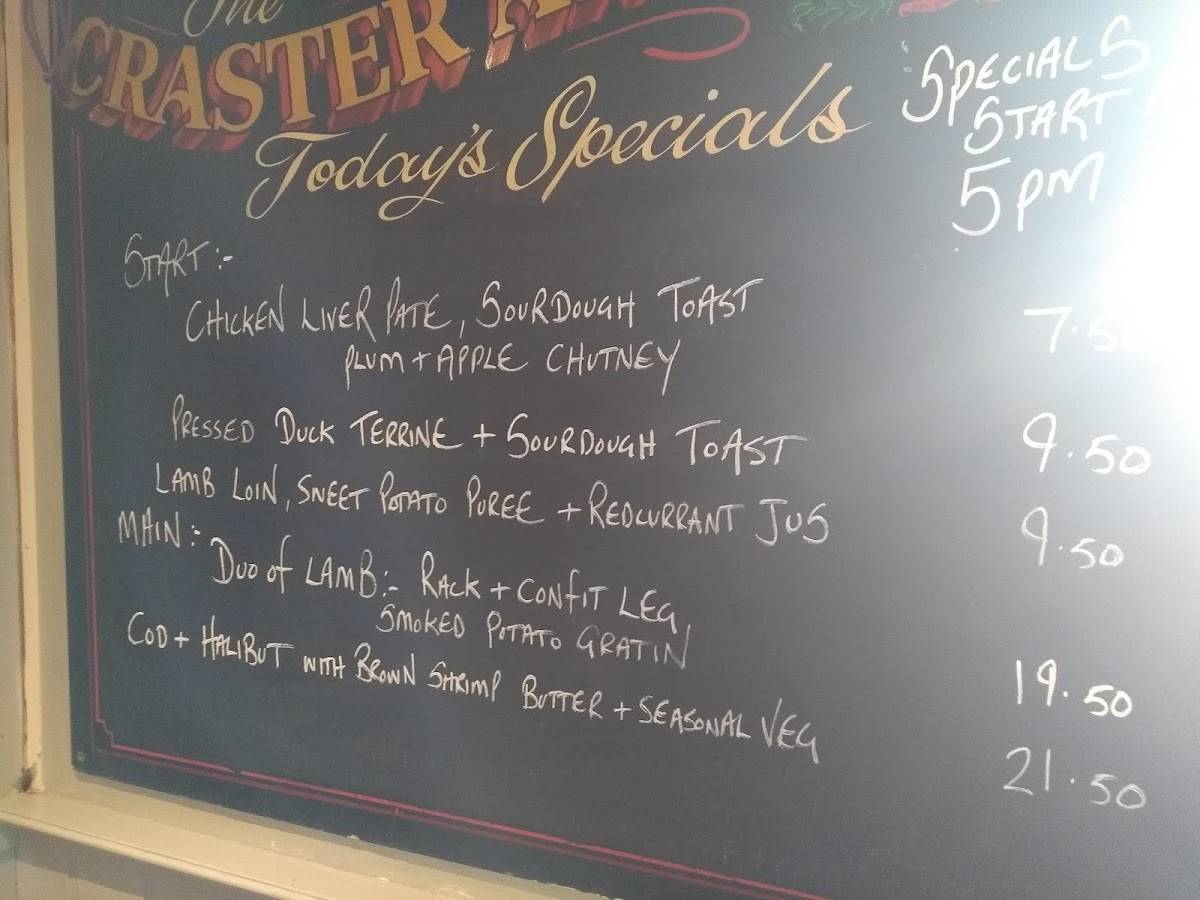 The
CRASTER
Today's Specials
SPECIALS
START
5PM
START:-
CHICKEN LIVER PATE, SOURDOUGH TOAST 7.50
PLUM + APPLE CHUTNEY
PRESSED DUCK TERRINE + SOURDOUGH TOAST 9.50
LAMB LOIN, SWEET POTATO PUREE + REDCURRANT JUS 9.50
MAIN:-
DUO OF LAMB:- RACK + CONFIT LEG,
SMOKED POTATO GRATIN 19.50
COD + HALIBUT WITH BROWN SHRIMP BUTTER + SEASONAL VEG 21.50